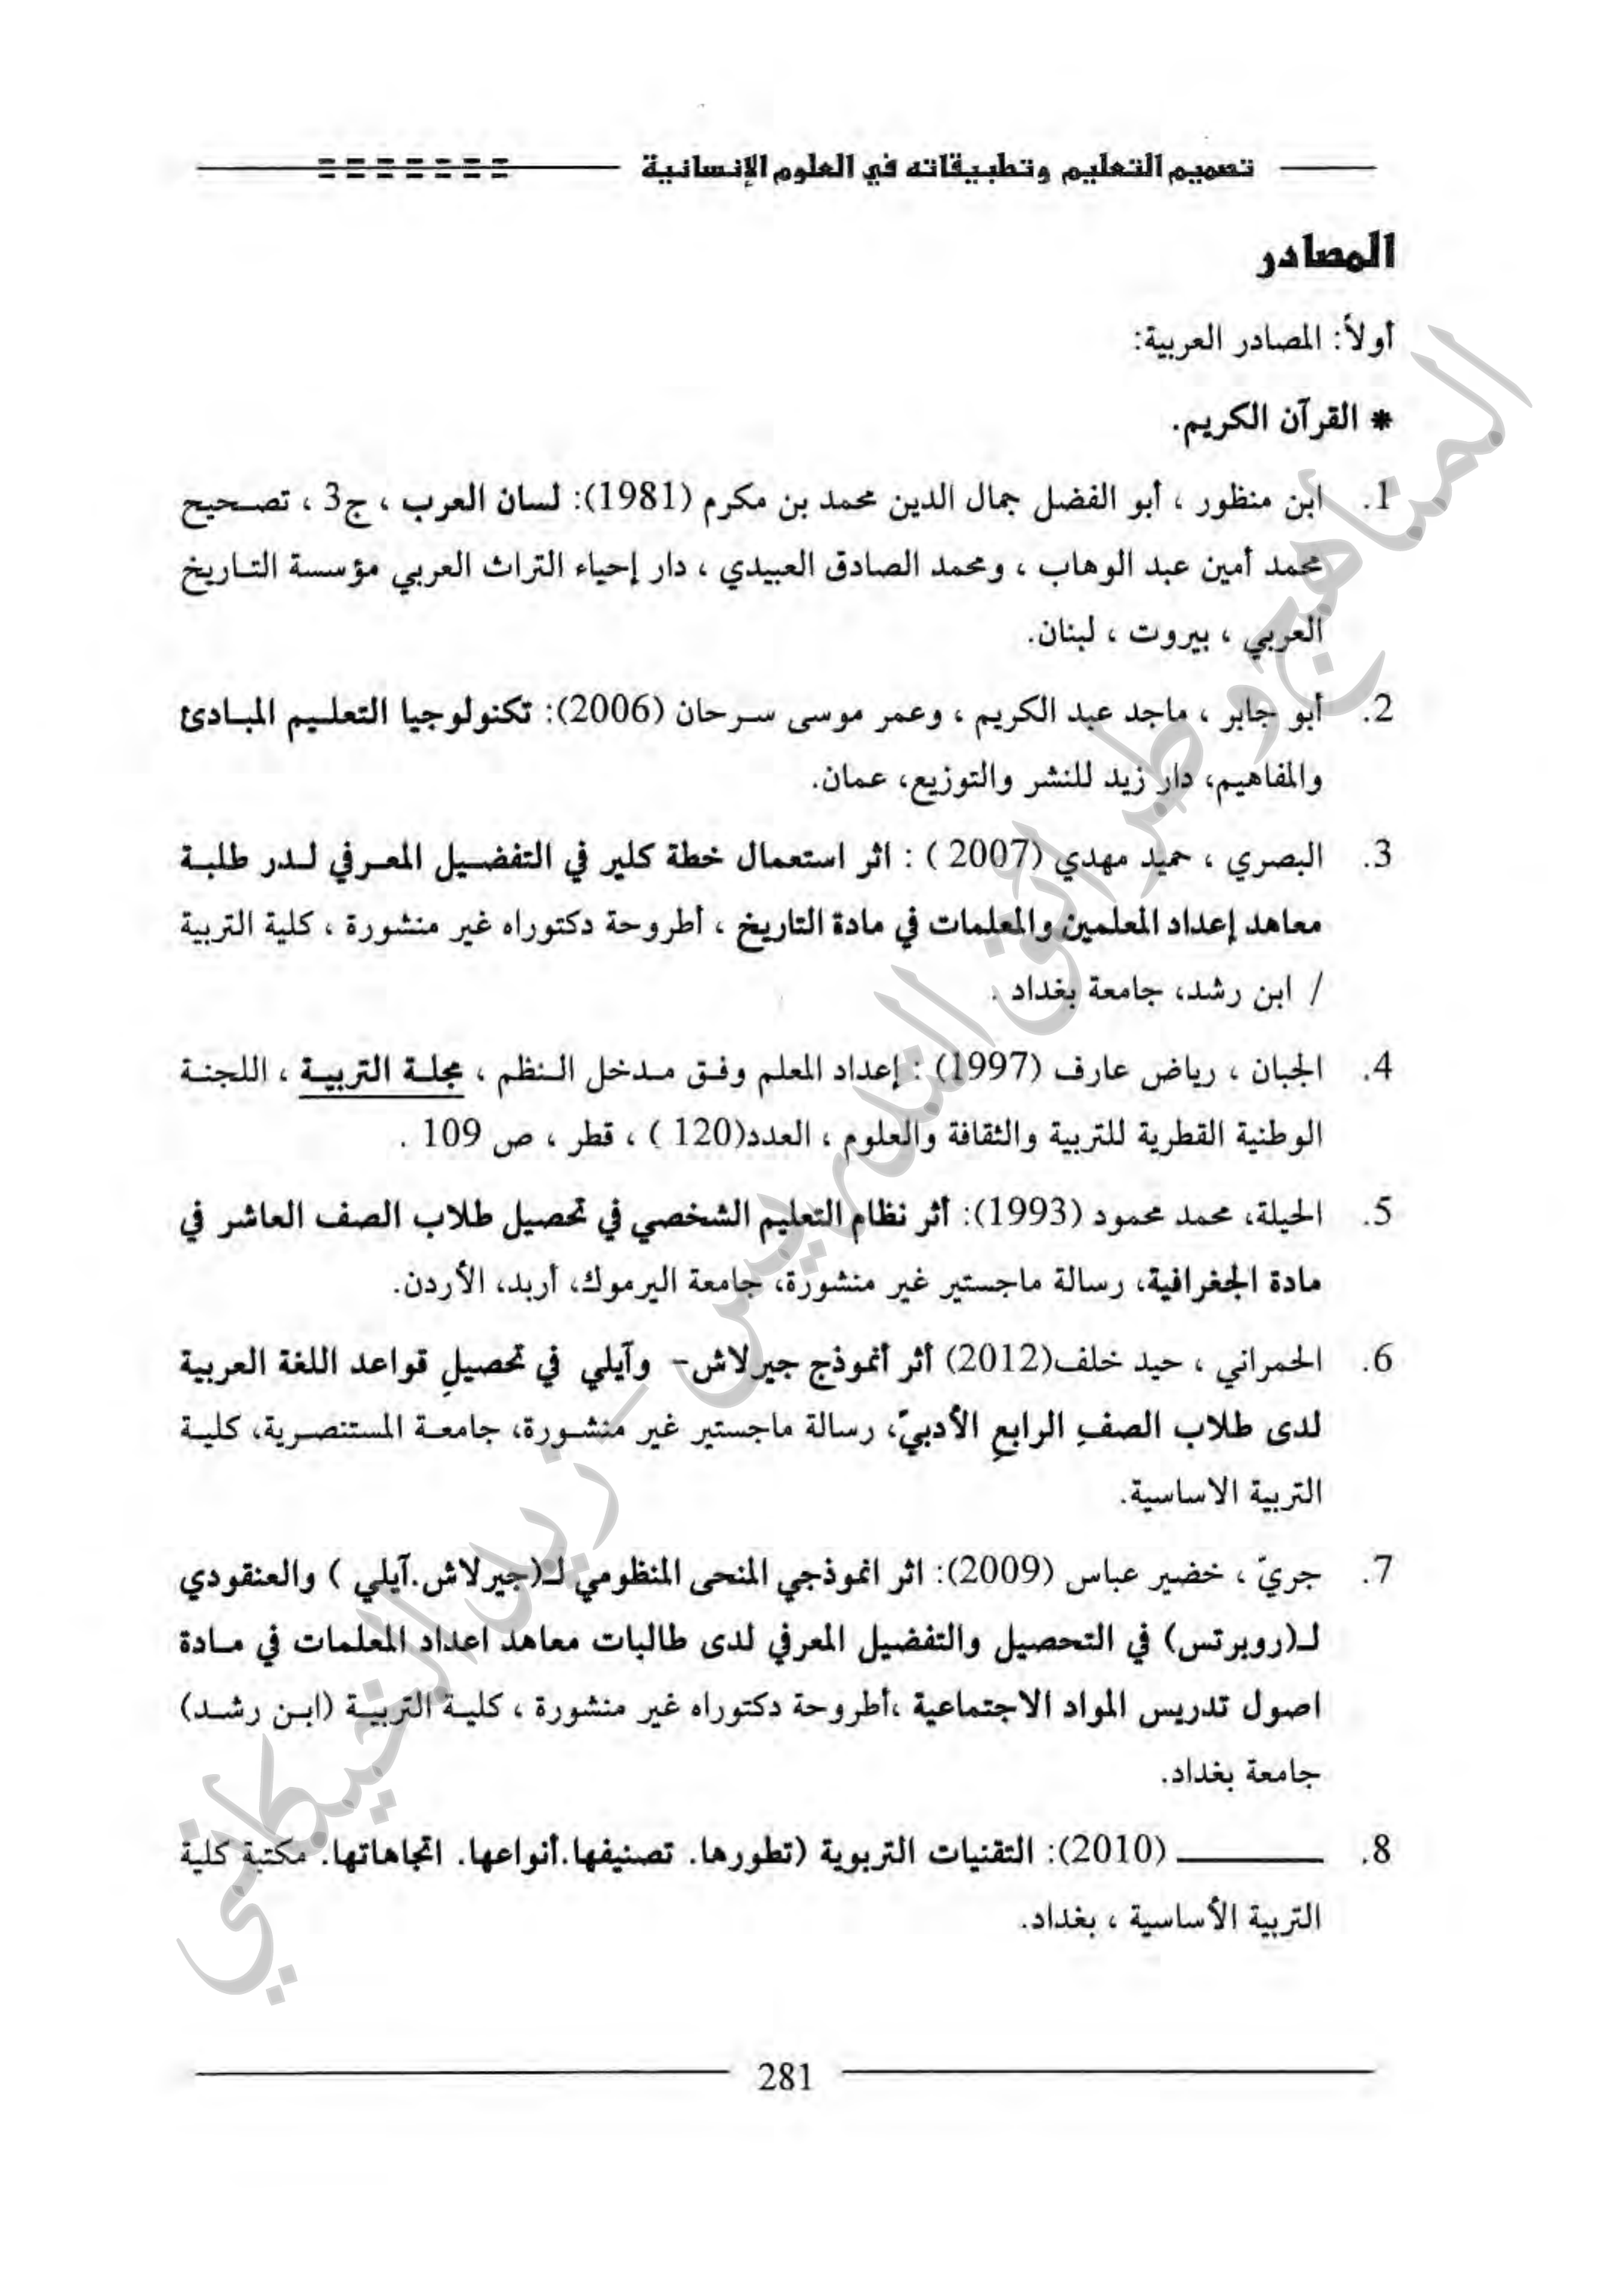 تصميم التعليم وتطبيقاته في العلوم الإنسانية
المصادر
أولاً: المصادر العربية:
* القرآن الكريم.
1. ابن منظور ، أبو الفضل جمال الدين محمد بن مكرم (1981): لسان العرب ، ج3 ، تصحيح
محمد أمين عبد الوهاب ، ومحمد الصادق العبيدي ، دار إحياء التراث العربي مؤسسة التاريخ
العربي ، بيروت ، لبنان.
2. أبو جابر ، ماجد عبد الكريم ، وعمر موسى سرحان (2006): تكنولوجيا التعليم المبادئ
والمفاهيم، دار زيد للنشر والتوزيع، عمان.
3. البصري ، حميد مهدي (2007 ) : اثر استعمال خطة كلير في التفضيل المعرفي لدر طلبة
معاهد إعداد المعلمين والمعلمات في مادة التاريخ ، أطروحة دكتوراه غير منشورة ، كلية التربية
/ ابن رشد، جامعة بغداد .
4. الجبان ، رياض عارف (1997) : إعداد المعلم وفق مدخل النظم ، مجلة التربية ، اللجنة
الوطنية القطرية للتربية والثقافة والعلوم ، العدد(120 ) ، قطر ، ص 109 .
5. الحيلة، محمد محمود (1993): أثر نظام التعليم الشخصي في تحصيل طلاب الصف العاشر في
مادة الجغرافية، رسالة ماجستير غير منشورة، جامعة اليرموك، أربد، الأردن.
6. الحمراني ، حيد خلف(2012) أثر أنموذج جيرلاش- وآيلي في تحصيلِ قواعد اللغة العربية
لدى طلاب الصفِ الرابعِ الأدبيّ، رسالة ماجستير غير منشورة، جامعة المستنصرية، كلية
التربية الاساسية.
7. جريّ ، خضير عباس (2009): اثر انموذجي المنحى المنظومي لـ(جيرلاش.آيلي ) والعنقودي
لـ(روبرتس) في التحصيل والتفضيل المعرفي لدى طالبات معاهد اعداد المعلمات في مادة
اصول تدريس المواد الاجتماعية ،أطروحة دكتوراه غير منشورة ، كلية التربية (ابن رشد)
جامعة بغداد.
8. ـــــــــــــ (2010): التقنيات التربوية (تطورها. تصنيفها.أنواعها. اتجاهاتها. مكتبة كلية
التربية الأساسية ، بغداد.
281
المناهج وطرائق التدريس - زيد الخيكاني